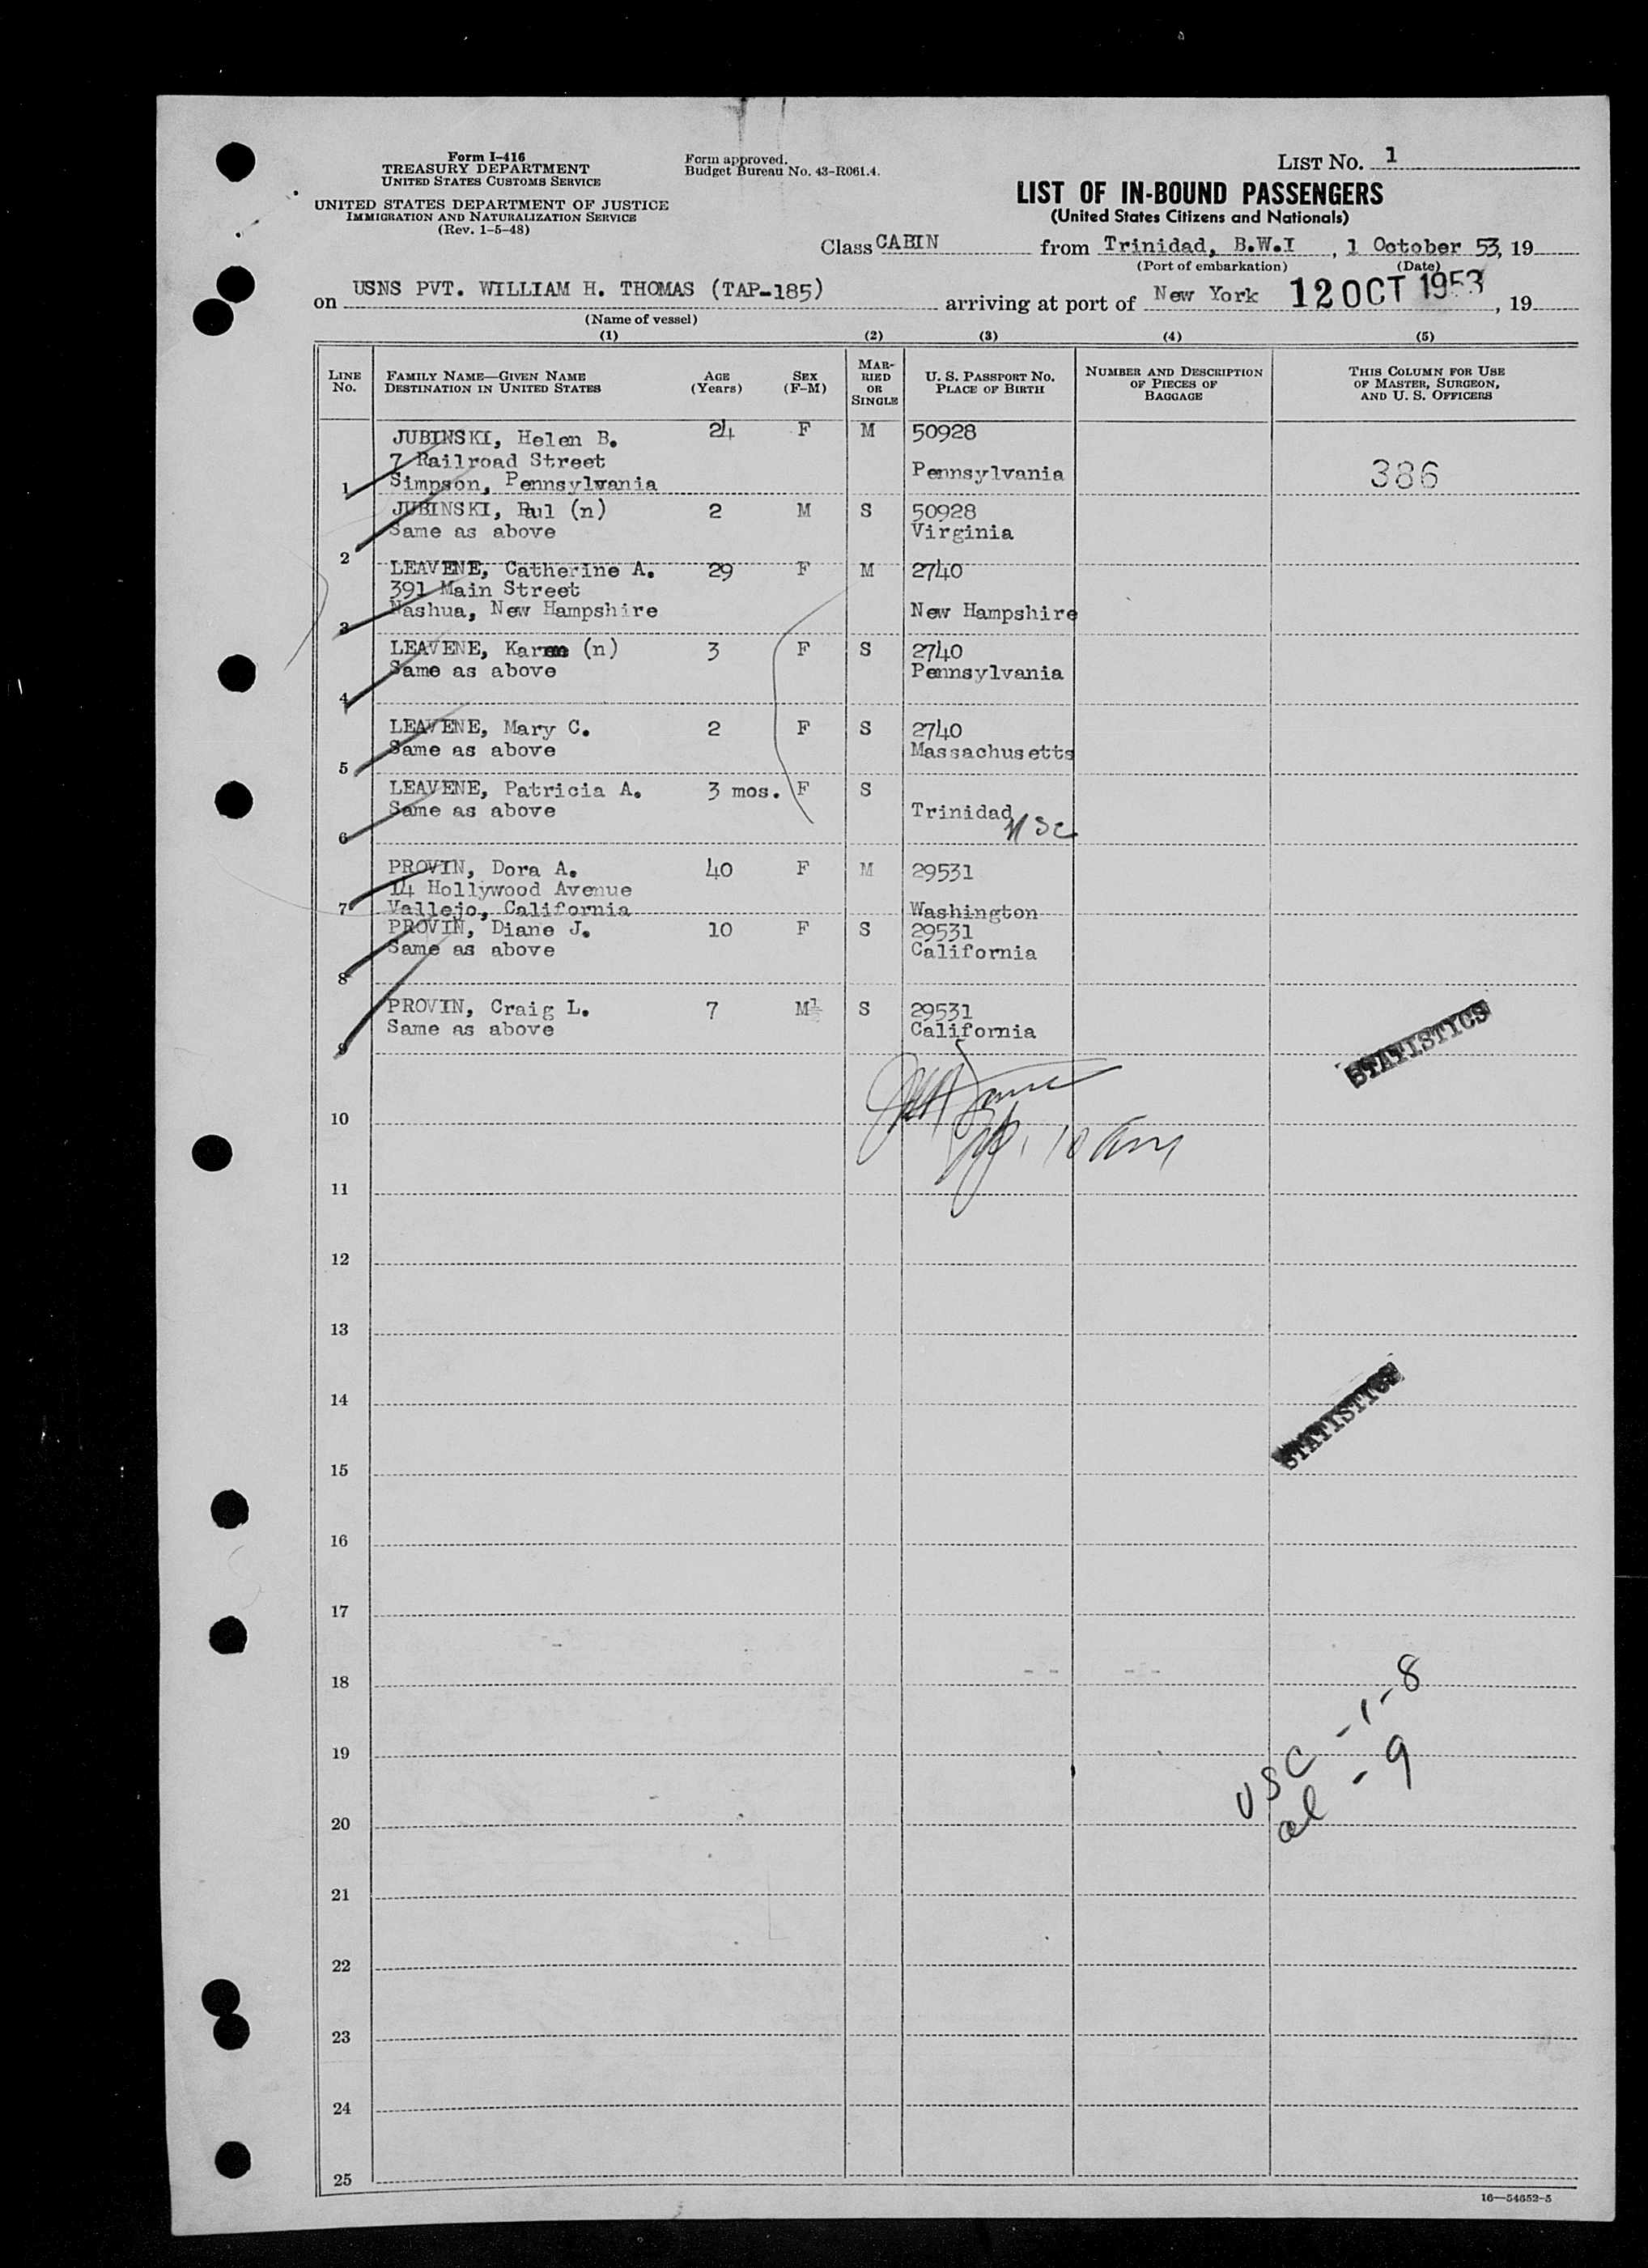 Form I-416
TREASURY DEPARTMENT
UNITED STATES CUSTOMS SERVICE
UNITED STATES DEPARTMENT OF JUSTICE
IMMIGRATION AND NATURALIZATION SERVICE
(Rev. 1-5-48)
Form approved.
Budget Bureau No. 43-R061.4.
LIST NO. 1
LIST OF IN-BOUND PASSENGERS
(United States Citizens and Nationals)
Class CABIN from Trinidad, B.W.I , 1 October 53, 19
(Port of embarkation) (Date)
on USNS PVT. WILLIAM H. THOMAS (TAP-185) arriving at port of New York 12 OCT 1953, 19
(Name of vessel)
(1) (2) (3) (4) (5)
LINE NO. FAMILY NAME—GIVEN NAME DESTINATION IN UNITED STATES AGE (YEARS) SEX (F-M) MARRIED OR SINGLE U. S. PASSPORT NO. PLACE OF BIRTH NUMBER AND DESCRIPTION OF PIECES OF BAGGAGE THIS COLUMN FOR USE OF MASTER, SURGEON, AND U. S. OFFICERS
JUBINSKI, Helen B. 24 F M 50928
7 Railroad Street
1 Simpson, Pennsylvania Pennsylvania 386
JUBINSKI, Paul (n) 2 M S 50928
Same as above Virginia
2
LEAVENE, Catherine A. 29 F M 2740
391 Main Street
3 Nashua, New Hampshire New Hampshire
LEAVENE, Karen (n) 3 F S 2740
Same as above Pennsylvania
4
LEAVENE, Mary C. 2 F S 2740
Same as above Massachusetts
5
LEAVENE, Patricia A. 3 mos. F S
Same as above Trinidad
6 USC
PROVIN, Dora A. 40 F M 29531
14 Hollywood Avenue
7 Vallejo, California Washington
PROVIN, Diane J. 10 F S 29531
Same as above California
8
PROVIN, Craig L. 7 M S 29531
Same as above California
9
STATISTICS
10
10 am
11
12
13
14
STATISTICS
15
16
17
18
USC - 1-8
19
al - 9
20
21
22
23
24
25
16—54652-5